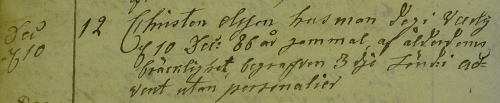 Dec 12 Christen Olsson husman dog i Varby
d 10 d 10 Dec: 86 år gammal af ålderdoms
bräcklighet, begrafven 3 dje Sönd: i ad-
vent utan personalier